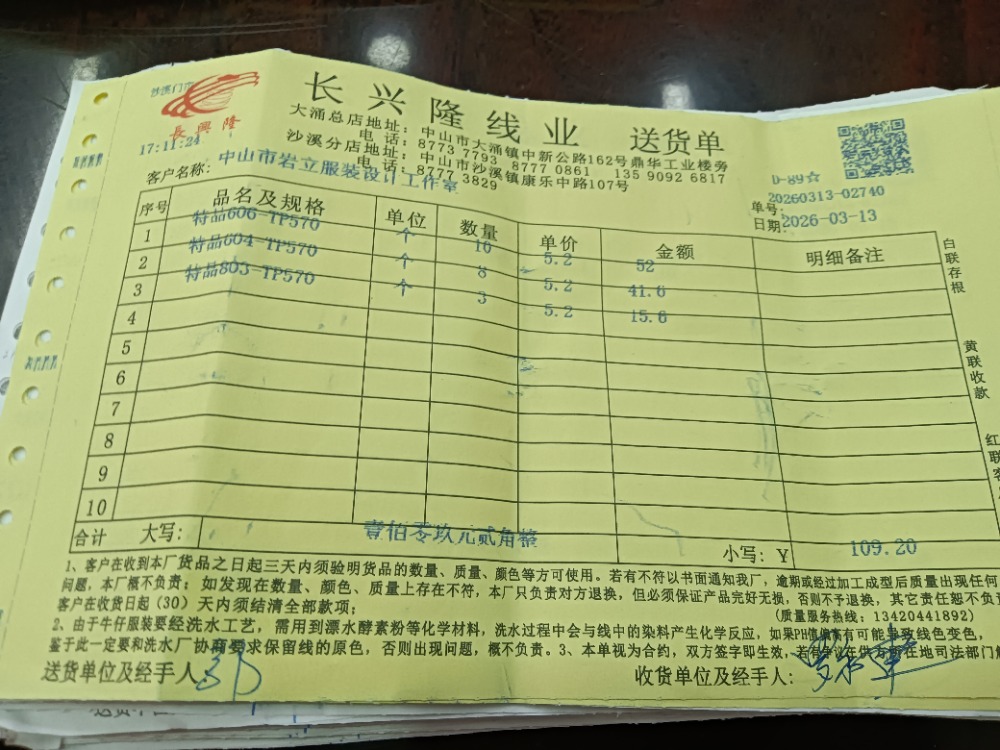 沙溪门市
長興隆
17:11:24
长兴隆线业 送货单
大涌总店地址：中山市大涌镇中新公路162号鼎华工业楼旁
电话：8773 7793 8777 0861 135 9092 6817
沙溪分店地址：中山市沙溪镇康乐中路107号
电话：8777 3829
D-89☆
客户名称：中山市岩立服装设计工作室
单号：20260313-02740
日期：2026-03-13
序号 品名及规格 单位 数量 单价 金额 明细备注
1 特品606-TP570 个 10 5.2 52
2 特品604-TP570 个 8 5.2 41.6
3 特品803-TP570 个 3 5.2 15.6
4
5
6
7
8
9
10
合计 大写： 壹佰零玖元贰角整 小写：¥ 109.20
白联存根
黄联收款
红联客
1、客户在收到本厂货品之日起三天内须验明货品的数量、质量、颜色等方可使用。若有不符以书面通知我厂，逾期或经过加工成型后质量出现任何
问题，本厂概不负责；如发现在数量、颜色、质量上存在不符，本厂只负责对方退换，但必须保证产品完好无损，否则不予退换，其它责任恕不负责
客户在收货日起（30）天内须结清全部款项；
（质量服务热线：13420441892）
2、由于牛仔服装要经洗水工艺，需用到漂水酵素粉等化学材料，洗水过程中会与线中的染料产生化学反应，如果PH值偏高有可能导致线色变色，
鉴于此一定要和洗水厂协商要求保留线的原色，否则出现问题，概不负责。3、本单视为合约，双方签字即生效，若有争议在供方所在地司法部门
送货单位及经手人：
收货单位及经手人：